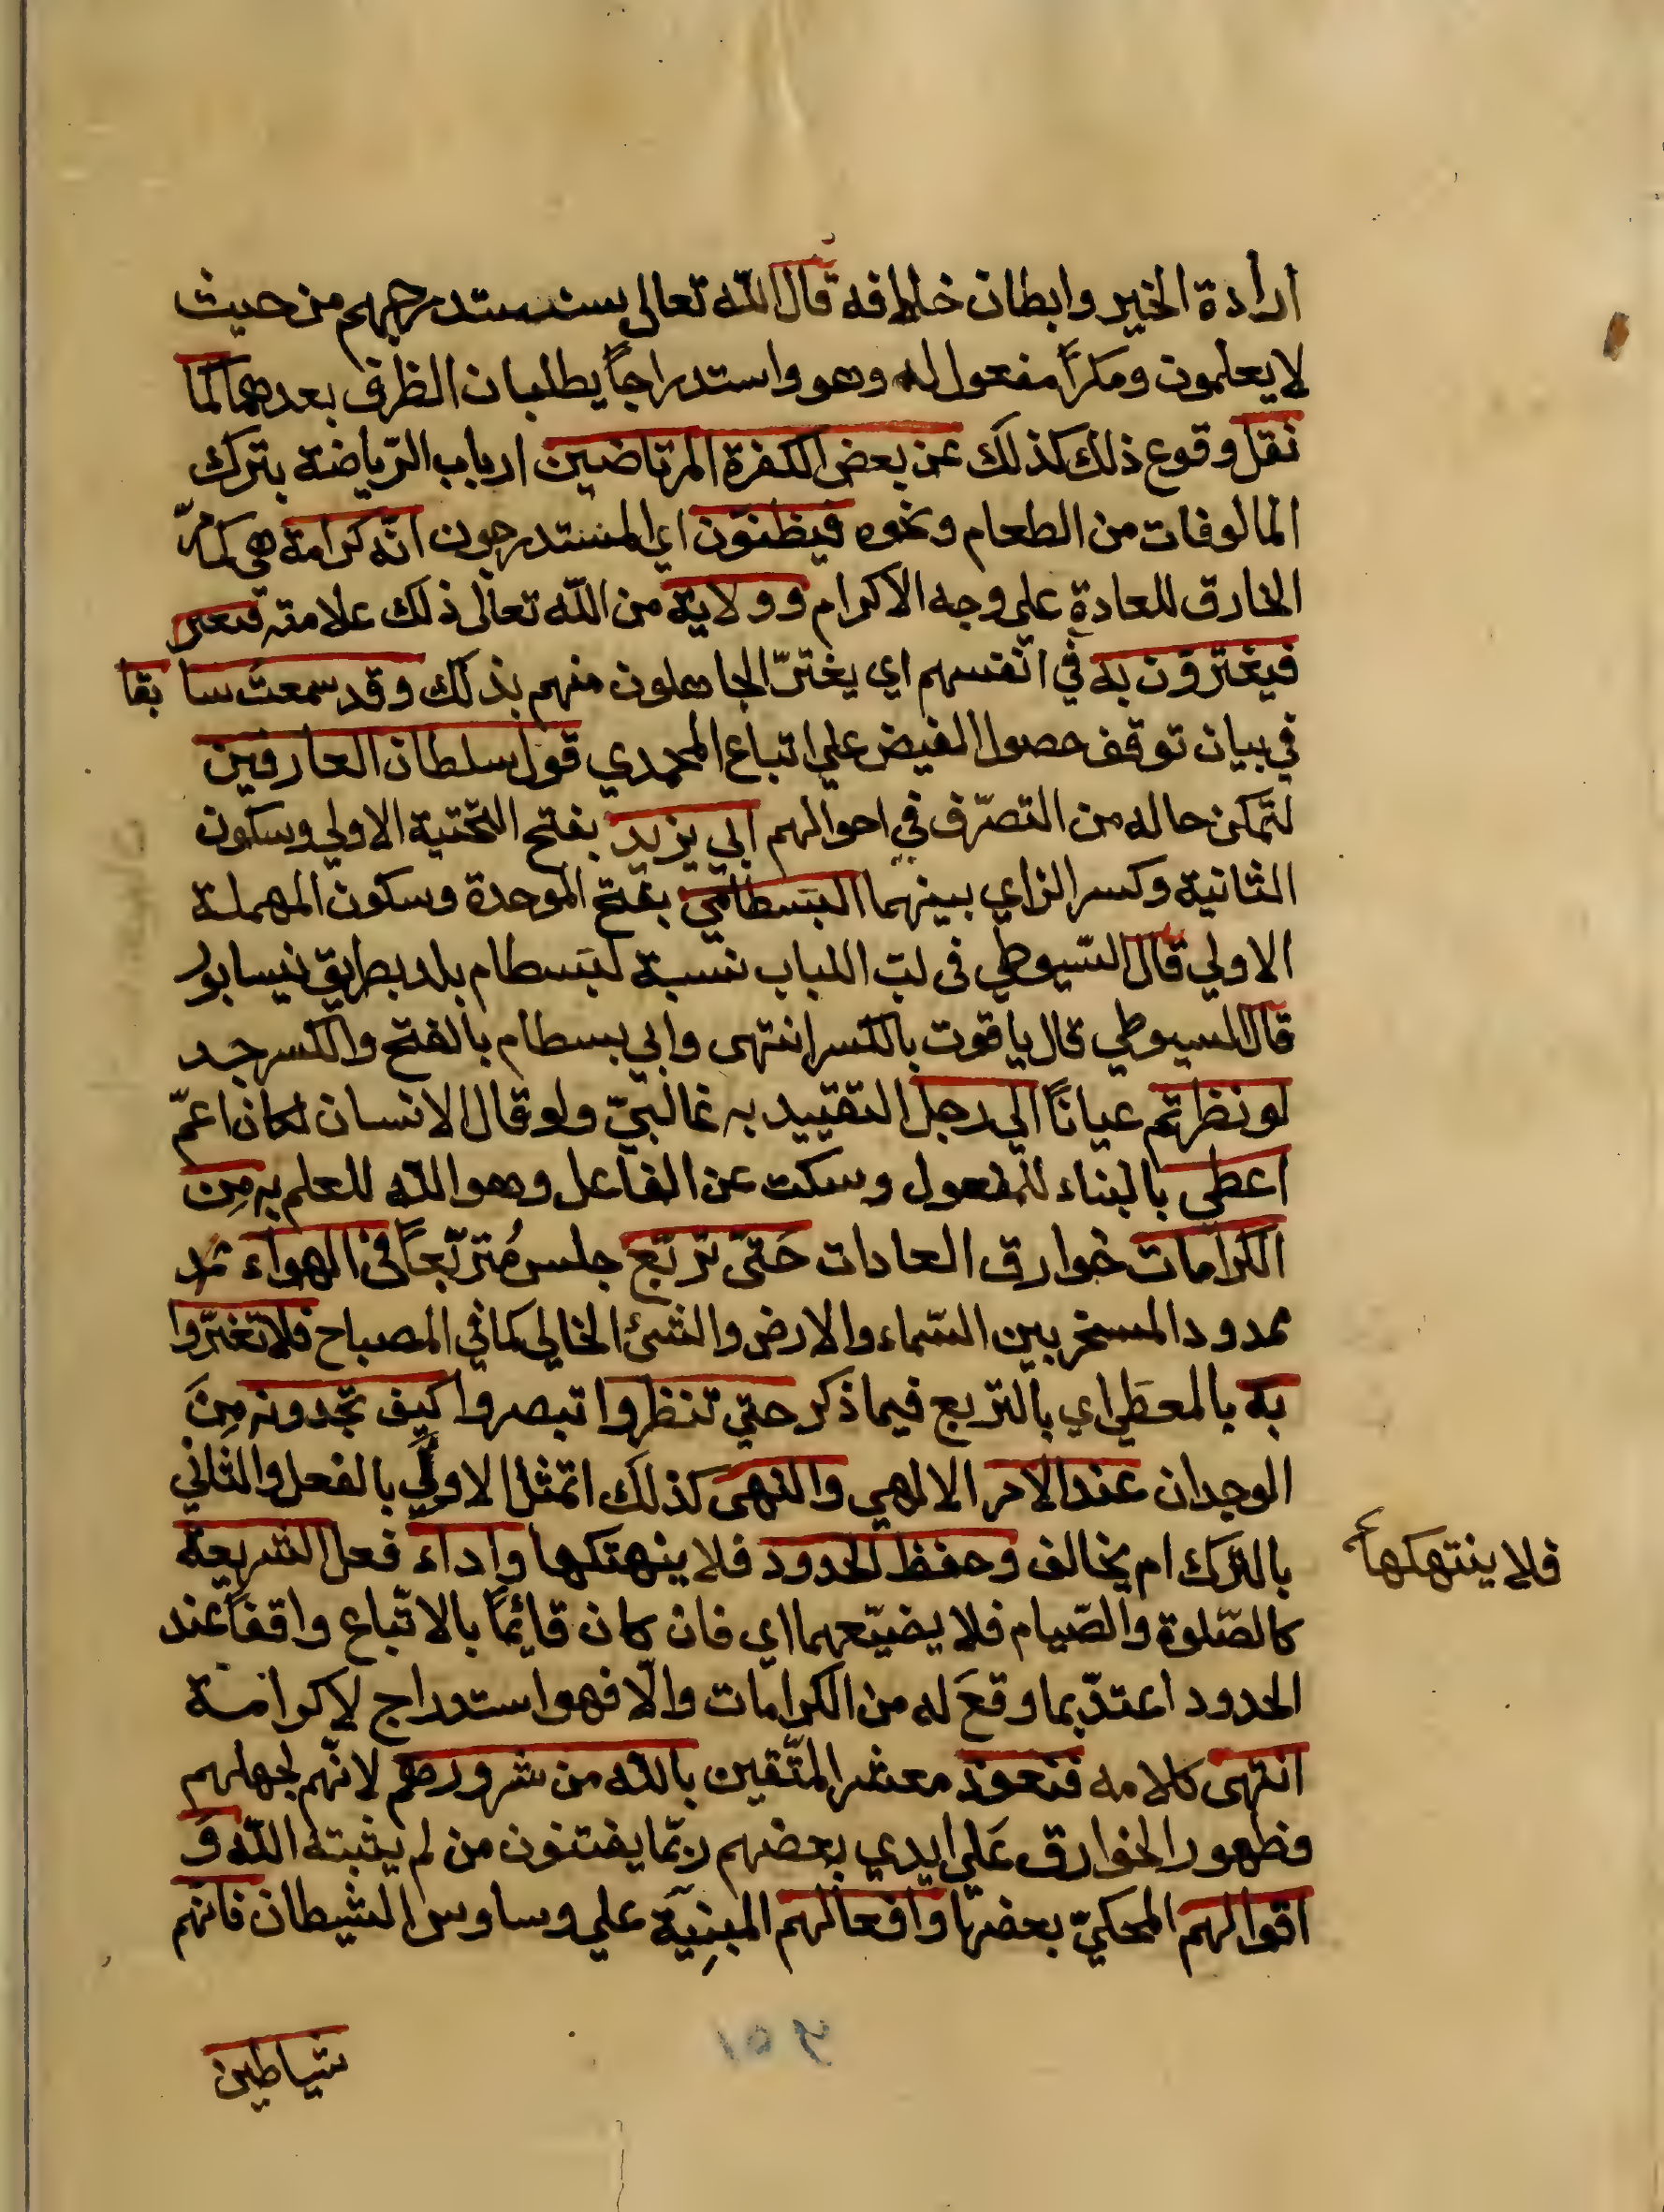 ارادة الخير وابطان خلافه قال الله تعالى سنستدرجهم من حيث
لا يعلمون ومكراً مفعول له وهو واستدراجاً يطلبان الظرف بعدهما كما
نقل وقوع ذلك كذلك عن بعض الكفرة المرتاضين ارباب الرّياضة بترك
المالوفات من الطعام ونحوه فيظنّون اي المستدرجون انّه كرامة هي كما مرّ
الخارق للعادة على وجه الاكرام وولاية من الله تعالى ذلك علامته
فيغترّون به في انفسهم اي يغترّ الجاهلون منهم بذلك وقد سمعت سابقا
في بيان توقف حصول الفيض علي اتباع المحمدي قول سلطان العارفين
لتمكن حاله من التصرّف في احوالهم ابي يزيد بفتح التحتية الاولي وسكون
الثانية وكسر الزاي بينهما البَسطامي بفتح الموحدة وسكون المهملة
الاولي قال السّيوطي في لبّ اللباب نسبة لبَسطام بلد بطريق نيسابور
قال السيوطي قال ياقوت بالكسر انتهى وابي بسطام بالفتح والكسر جد
لو نظرتم عياناً الي رجل التقييد به غالبيّ ولو قال الانسان لكان اعمّ
اعطي بالبناء للمفعول وسكت عن الفاعل وهو الله للعلم به مِن
الكرامات خوارق العادات حَتّى تربّع جلس مُتربّعاً في الهواء
ممدود المسخر بين السّماء والارض والشئ الخالي كما في المصباح فلا تغترّوا
به بالمعطَي اي بالتربع فيما ذكر حتي تنظروا تبصروا كيف تجدونه مِنَ
الوجدان عند الامر الالهي والنهى كذلك اتمثل الاولي بالفعل والثاني
بالترك ام يخالف وحفظ الحدود فلا ينهتكها واداء فعل الشريعة
فلا ينتهكها
كالصّلوة والصّيام فلا يضيّعهما اي فان كان قائمًا بالاتّباع واقفاً عند
الحدود اعتدّ بما وقعَ له من الكرامات والّا فهو استدراج لا كرامة
انتهى كلامه فنعوذ معشر المتّقين بالله من شرورهم لانّهم لجهلهم
وظهور الخوارق عَلي ايدي بعضهم ربّما يفتنون من لم يثبته الله وَ
اقوالهم المحكيّ بعضها وافعالهم المبنِيّة علي وساوس الشيطان فانهم
شياطين